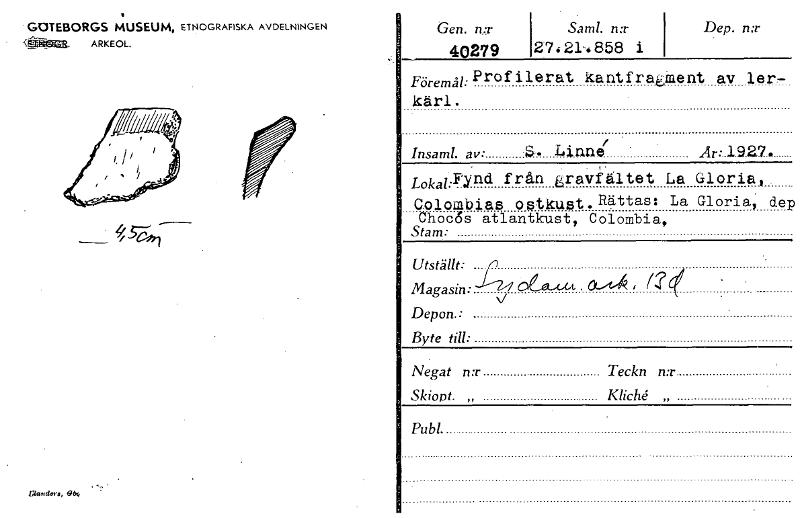 GÖTEBORGS MUSEUM, ETNOGRAFISKA AVDELNINGEN
ETNOGR. ARKEOL.
4,5cm
Elanders, Gbg
Gen. n:r Saml. n:r Dep. n:r
40279 27.21.858 i
Föremål: Profilerat kantfragment av ler-
kärl.
Insaml. av: S. Linné År: 1927.
Lokal: Fynd från gravfältet La Gloria,
Colombias ostkust. Rättas: La Gloria, dep
Chocós atlantkust, Colombia,
Stam:
Utställt:
Magasin: Sydam. ark. 13d
Depon.:
Byte till:
Negat n:r Teckn n:r
Skiopt. „ Kliché „
Publ.